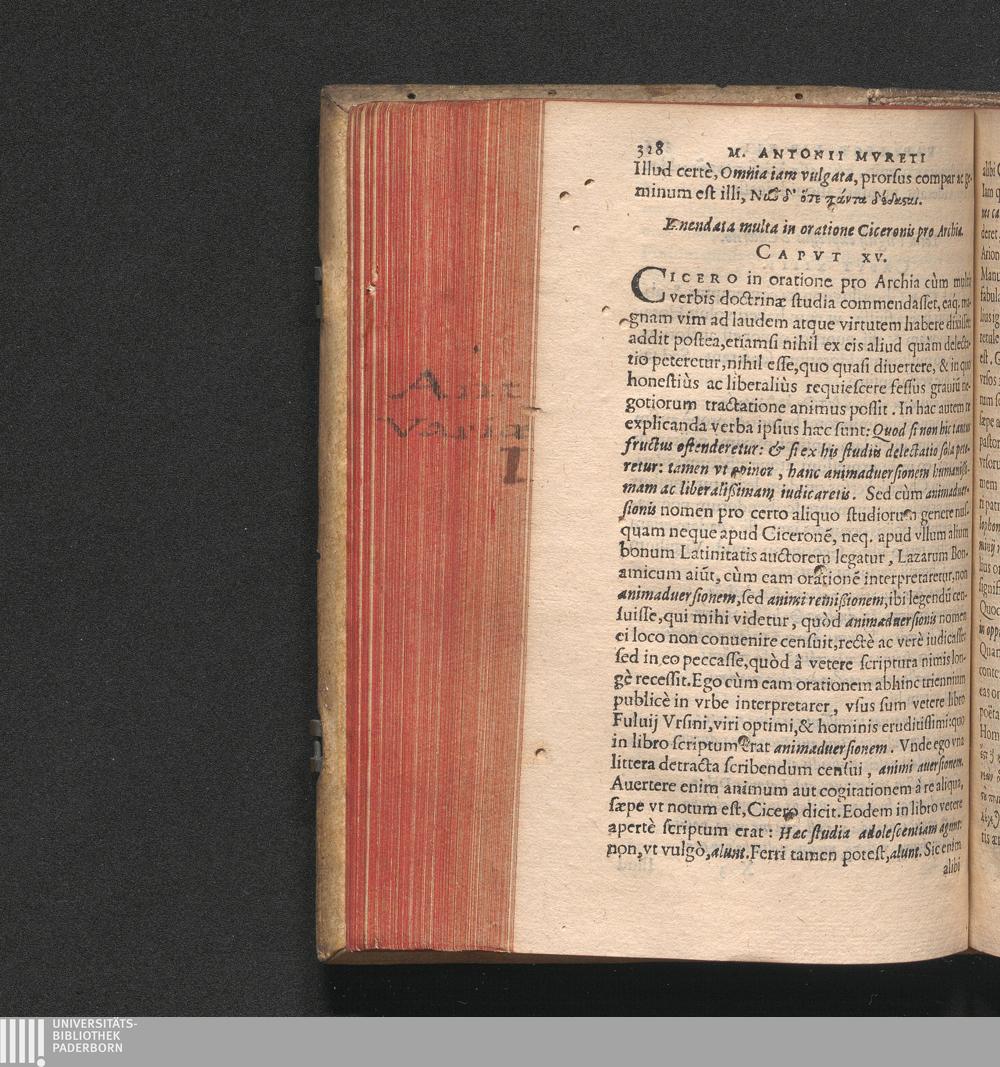 328 M. ANTONII MVRETI
Illud certè, Omnia iam vulgata, prorsus compar ac ge-
minum est illi, Νῦν δ' ὅτε πάντα δέδασαι.
Emendata multa in oratione Ciceronis pro Archia.
CAPVT XV.
CICERO in oratione pro Archia cùm multis
verbis doctrinæ studia commendasset, eaq. ma-
gnam vim ad laudem atque virtutem habere dixisset
addit postea, etiamsi nihil ex eis aliud quàm delecta-
tio peteretur, nihil esse, quo quasi diuertere, & in quo
honestiùs ac liberaliùs requiescere fessus grauiū ne-
gotiorum tractatione animus possit. In hac autem re
explicanda verba ipsius hæc sunt: Quod si non hic tantus
fructus ostenderetur: & si ex his studiis delectatio sola pete-
retur: tamen vt opinor, hanc animaduersionem humanißi-
mam ac liberalißimam iudicaretis. Sed cùm animaduer-
sionis nomen pro certo aliquo studiorum genere nus-
quam neque apud Ciceronē, neq. apud vllum alium
bonum Latinitatis auctorem legatur, Lazarum Bon-
amicum aiūt, cùm eam orationē interpretaretur, non
animaduersionem, sed animi remißionem, ibi legendū cen-
suisse, qui mihi videtur, quòd animaduersionis nomen
ei loco non conuenire censuit, rectè ac verè iudicasse:
sed in eo peccasse, quòd à vetere scriptura nimis lon-
gè recessit. Ego cùm eam orationem abhinc triennium
publicè in vrbe interpretarer, vsus sum vetere libro
Fuluij Vrsini, viri optimi, & hominis eruditissimi: quo
in libro scriptum erat animaduersionem. Vnde ego vna
littera detracta scribendum censui, animi auersionem.
Auertere enim animum aut cogitationem à re aliqua,
sæpe vt notum est, Cicero dicit. Eodem in libro vetere
apertè scriptum erat: Hæc studia adolescentiam agunt:
non, vt vulgò, alunt. Ferri tamen potest, alunt. Sic enim
alibi
Ant
Varia
I
UNIVERSITÄTS-
BIBLIOTHEK
PADERBORN